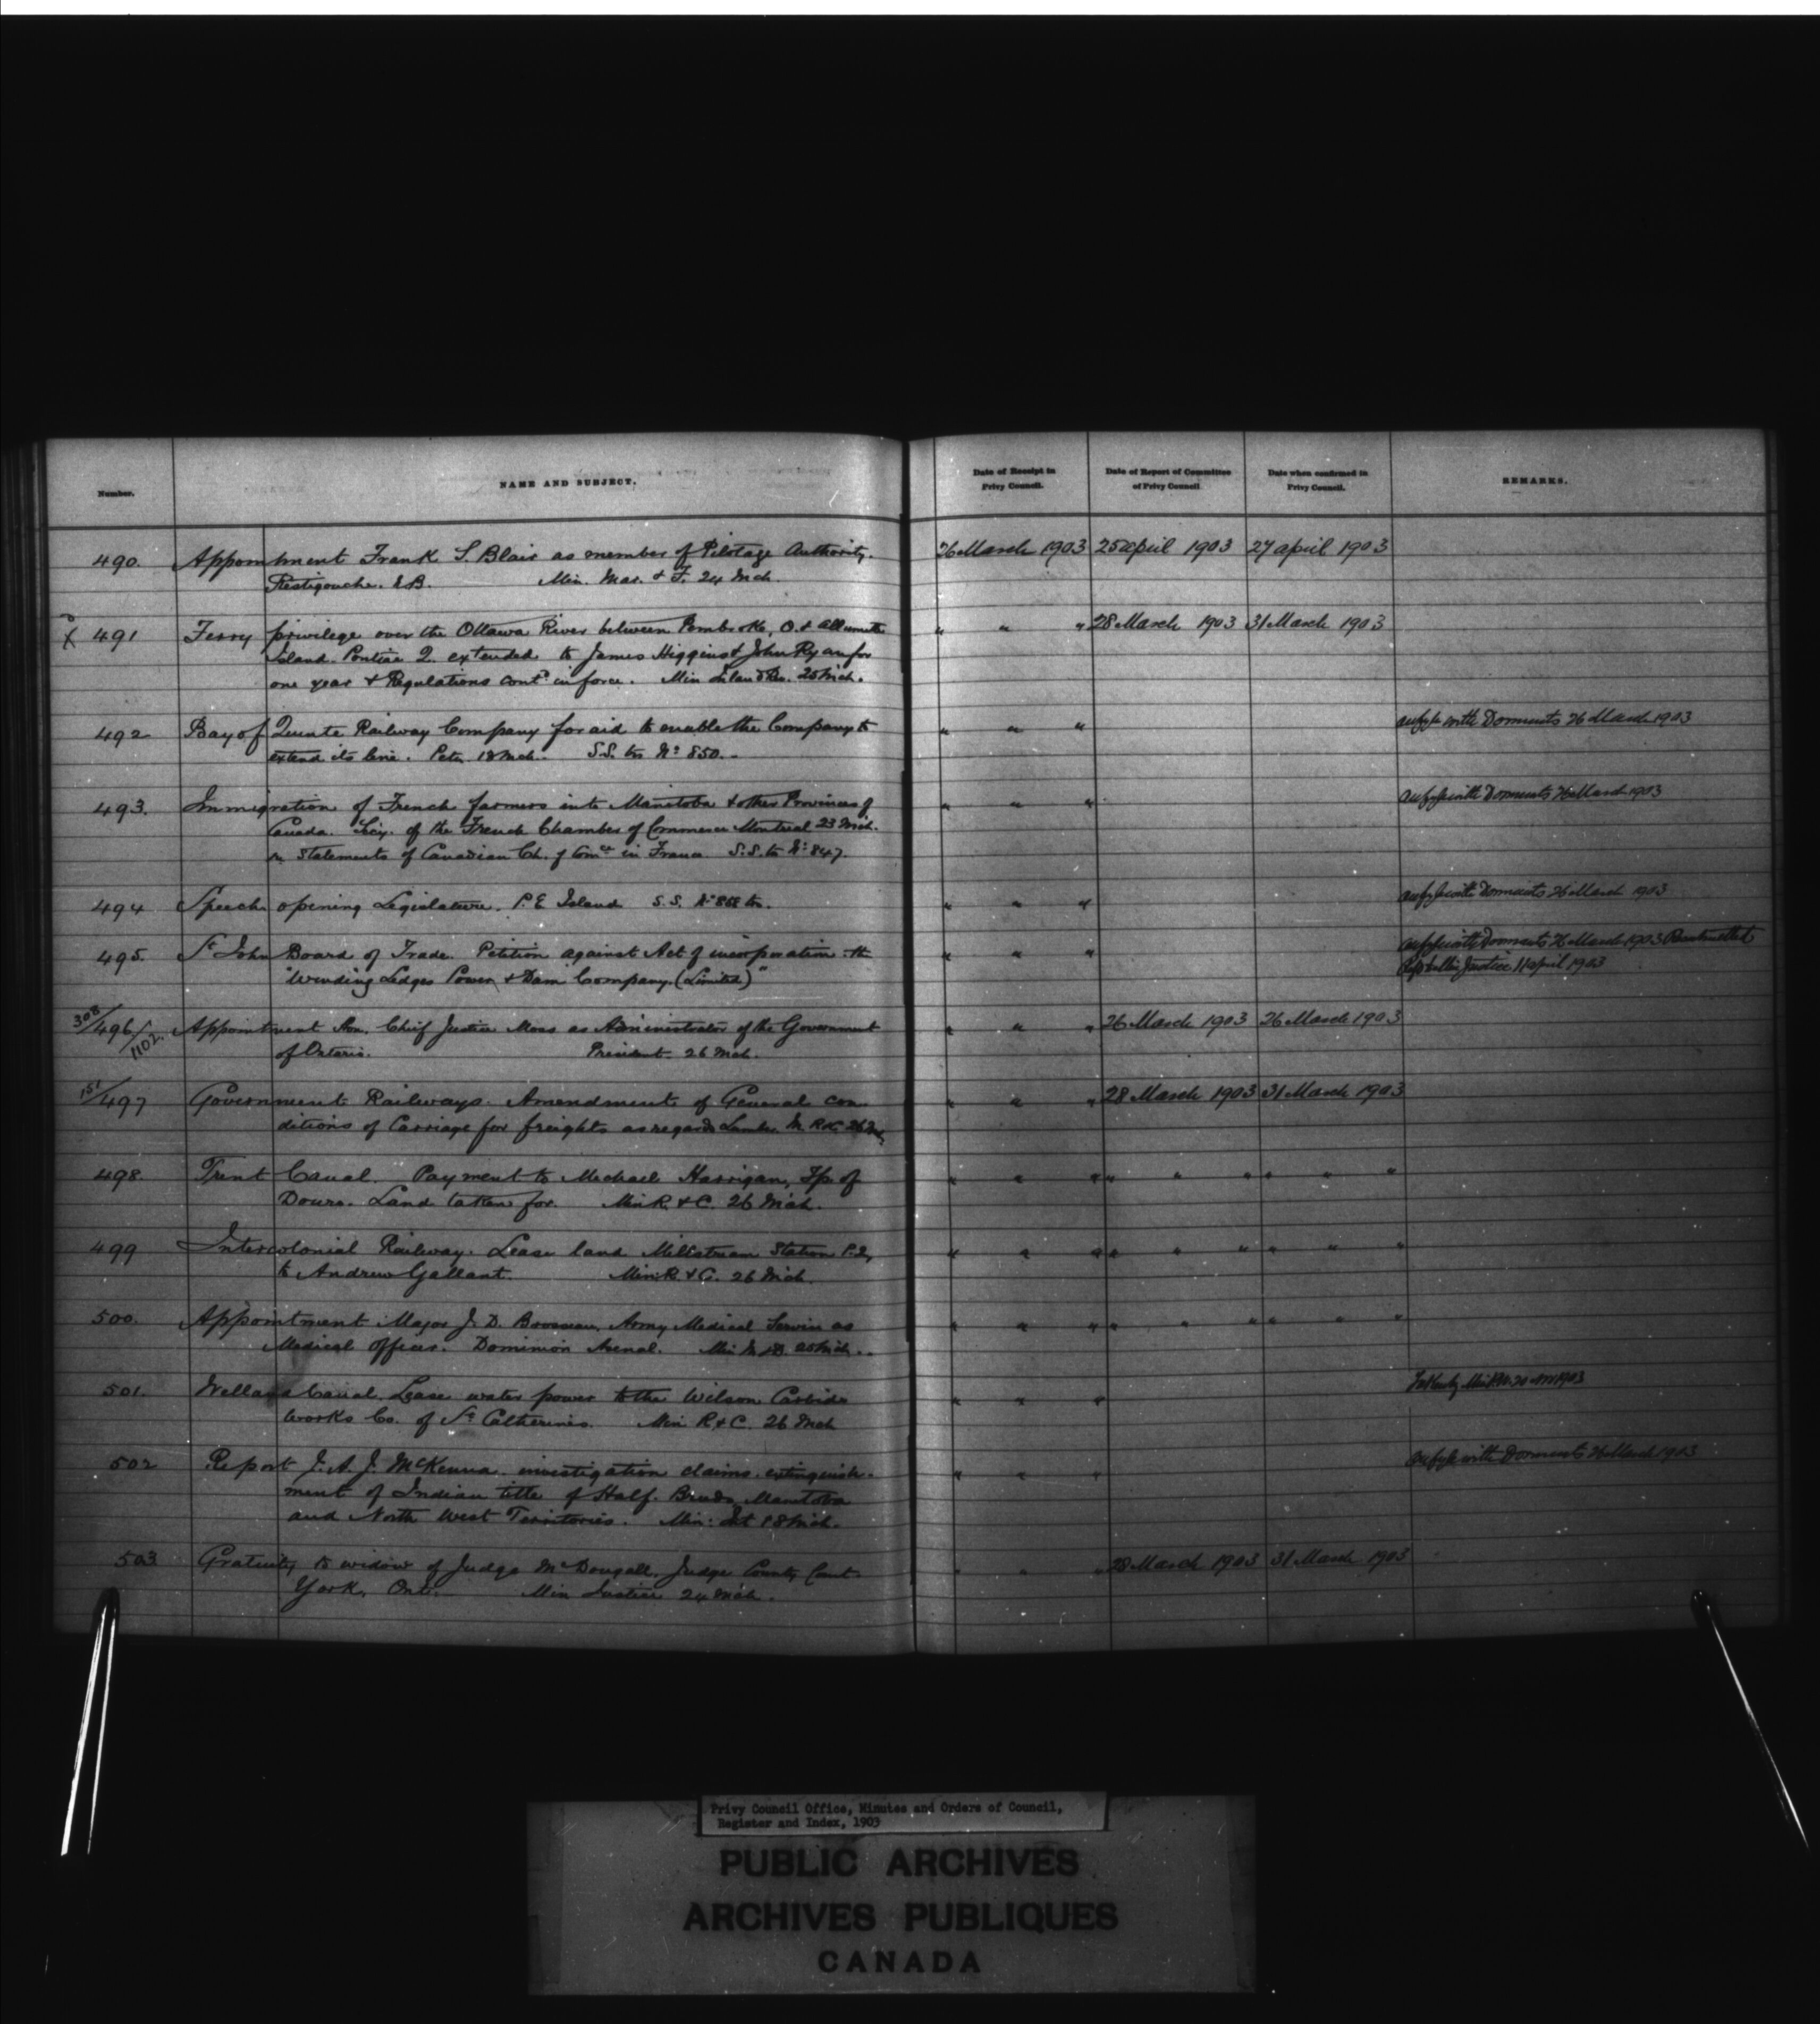 Number.
NAME AND SUBJECT.
Date of Receipt in Privy Council.
Date of Report of Committee of Privy Council
Date when confirmed in Privy Council.
REMARKS.
490. Appointment Frank S. Blair as member of Pilotage Authority. 26 March 1903 25 april 1903 27 april 1903
Restigouche. N.B. Min. Mar. & F. 24 Mch.
X 491 Ferry privilege over the Ottawa River between Pembroke, O. & Allumette " " " 28 March 1903 31 March 1903
Island. Pontiac Q. extended to James Higgins & John Ryan for
one year & Regulations contd in force. Min Inland Rev. 25 Mch.
492 Bay of Quinte Railway Company for aid to enable the Company to " " " with Dormants 26 March 1903
extend its line. Petn 18 Mch. S.S. No 850.
493. Immigration of French farmers into Manitoba & other Provinces of " " " with Dormants 26 March 1903
Canada. Secy. of the French Chamber of Commerce Montreal 23 Mch.
re Statements of Canadian Ch. of Comce in France. S.S. No 847.
494 Speech opening Legislature. P.E Island S.S. No " " " with Dormants 26 March 1903
495. St John Board of Trade. Petition against Act of incorporation " " " with Dormants 26 March 1903
"Winding Ledges Power & Dam Company. (Limited)" Justice 11 april 1903
308/496/1102. Appointment Hon. Chief Justice Moss as Administrator of the Government " " " 26 March 1903 26 March 1903
of Ontario. President. 26 Mch.
151/497 Government Railways. Amendment of General con- " " " 28 March 1903 31 March 1903
ditions of Carriage for freights as regards Lumber. M. R&C. 26 Mch.
498. Trent Canal. Payment to Michael Harrigan, Tp. of " " " " " " " " "
Douro. Land taken for. Min R. & C. 26 Mch.
499 Intercolonial Railway. Lease land Millstream Station P.Q. " " " " " " " " "
to Andrew Gallant. Min: R. & C. 26 Mch.
500. Appointment Major J. D. Brosseau, Army Medical Service as " " " " " " " " "
Medical Officer. Dominion Arsenal. Min M & D. 25 Mch.
501. Welland Canal. Lease water power to the Wilson Carbide " " " 1903
Works Co. of St Catherines. Min R. & C. 26 Mch
502 Report J. A. J. McKenna investigation claims extinguish- " " " with Dormants 26 March 1903
ment of Indian title of Half Breeds Manitoba
and North West Territories. Min: Int 18 Mch.
503 Gratuity to widow of Judge McDougall, Judge County Court " " " 28 March 1903 31 March 1903
York, Ont. Min Justice 24 Mch.
Privy Council Office, Minutes and Orders of Council,
Register and Index, 1903
PUBLIC ARCHIVES
ARCHIVES PUBLIQUES
CANADA